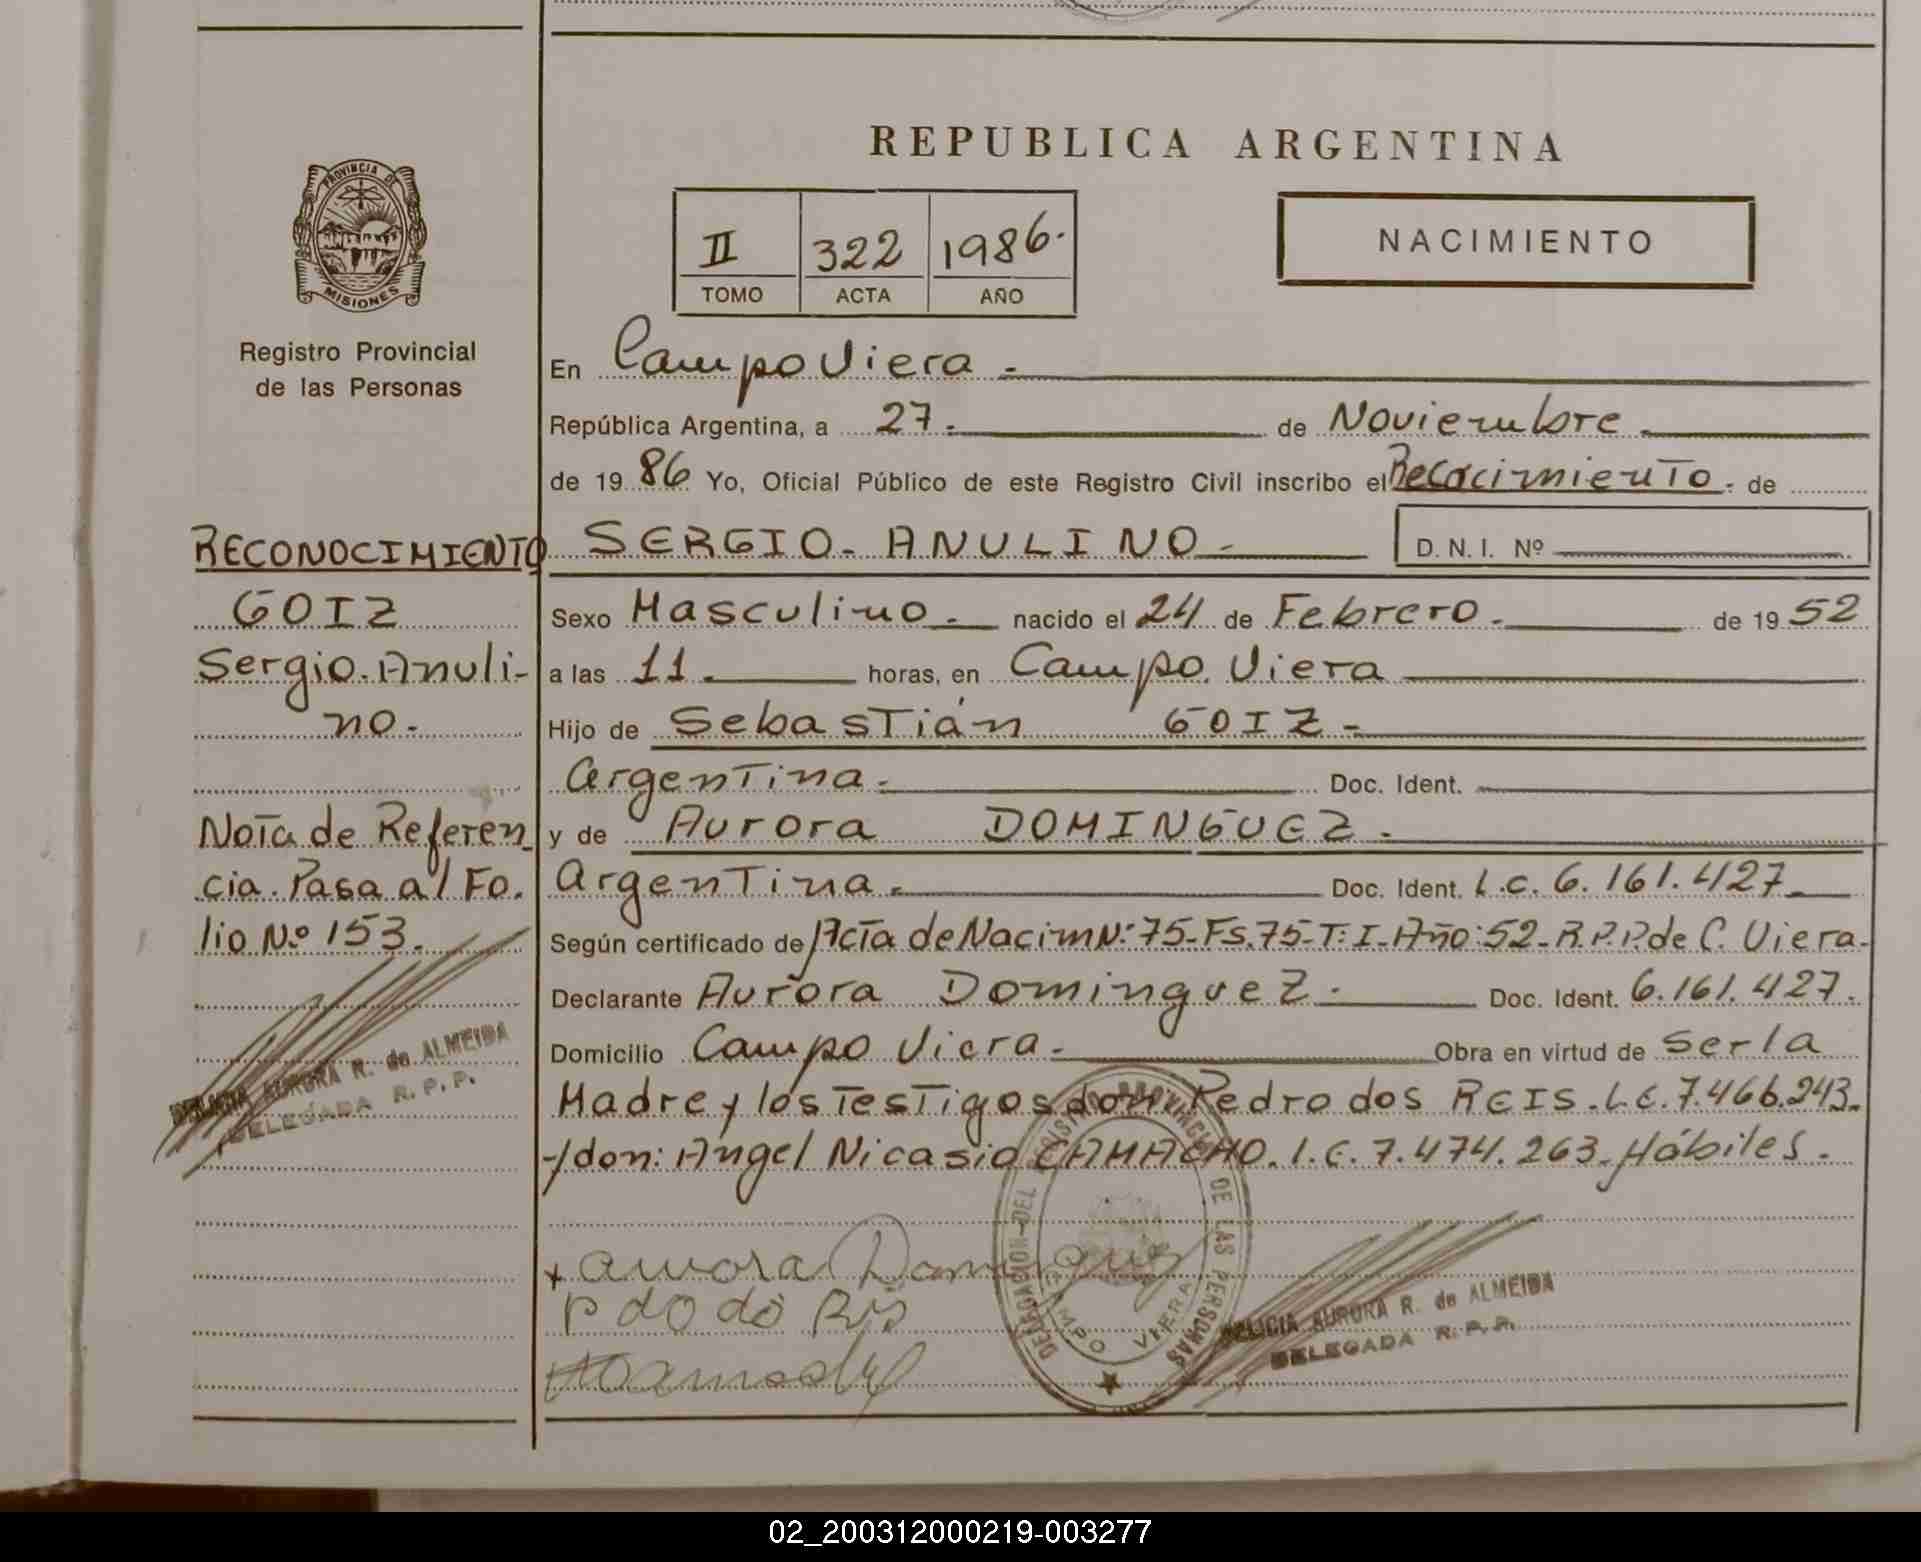 REPUBLICA ARGENTINA
PROVINCIA DE
MISIONES
Registro Provincial
de las Personas
II 322 1986.
TOMO ACTA AÑO
NACIMIENTO
En Campo Viera.
República Argentina, a 27. de Noviembre.
de 19 86 Yo, Oficial Público de este Registro Civil inscribo el Recocimiento. de
SERGIO. ANULINO. D. N. I. Nº
Sexo Masculino. nacido el 24 de Febrero. de 19 52
a las 11. horas, en Campo. Viera
Hijo de Sebastián GOIZ.
Argentina. Doc. Ident.
y de Aurora DOMINGUEZ.
Argentina. Doc. Ident. L.C. 6.161.427
Según certificado de Acta de Nacim Nº 75-Fs.75-T: I-Año:52-R.P.P. de C. Viera-
Declarante Aurora Dominguez. Doc. Ident. 6.161.427.
Domicilio Campo Viera. Obra en virtud de ser la
Madre y los Testigos don Pedro dos REIS. L.E. 7.466.243.
y don: Angel Nicasio CAMACHO. L.E. 7.474.263. Hábiles.
RECONOCIMIENTO
GOIZ
Sergio. Anuli-
no.
Nota de Referen
cia. Pasa al Fo.
lio Nº 153.
DELICIA AURORA R. de ALMEIDA
DELEGADA R. P. P.
aurora Dominguez
DELEGACION DEL REGISTRO PROVINCIAL DE LAS PERSONAS
CAMPO VIERA
DELICIA AURORA R. de ALMEIDA
DELEGADA R. P. P.
02_200312000219-003277